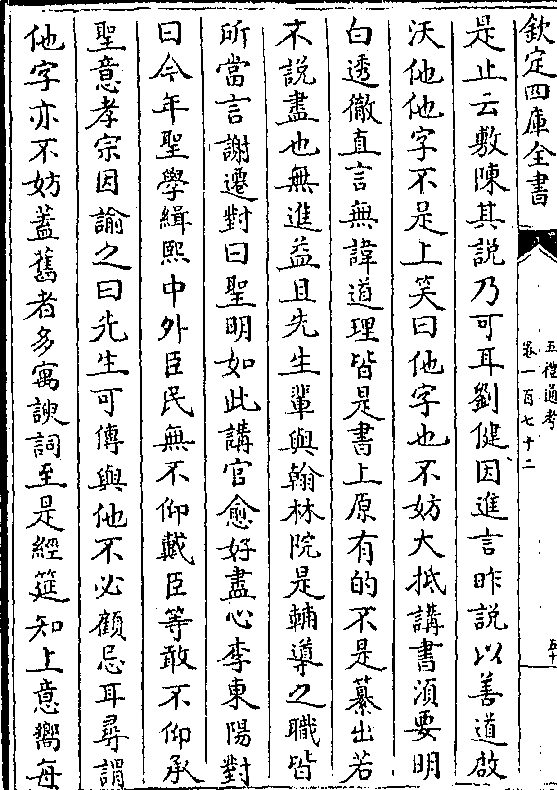 欽定四庫全書
五禮通考
卷一百七十二
是止云敷陳其說乃可耳劉健因進言昨說以善道啟
沃他他字不是上笑曰他字也不妨大抵講書須要明
白透徹直言無諱道理皆是書上原有的不是纂出若
不說盡也無進益且先生輩與翰林院是輔導之職皆
所當言謝遷對曰聖明如此講官愈好盡心李東陽對
曰今年聖學緝熙中外臣民無不仰戴臣等敢不仰承
聖意孝宗因諭之曰先生可傳與他不必顧忌耳尋謂
他字亦不妨蓋舊者多寓諛詞至是經筵知上意嚮每